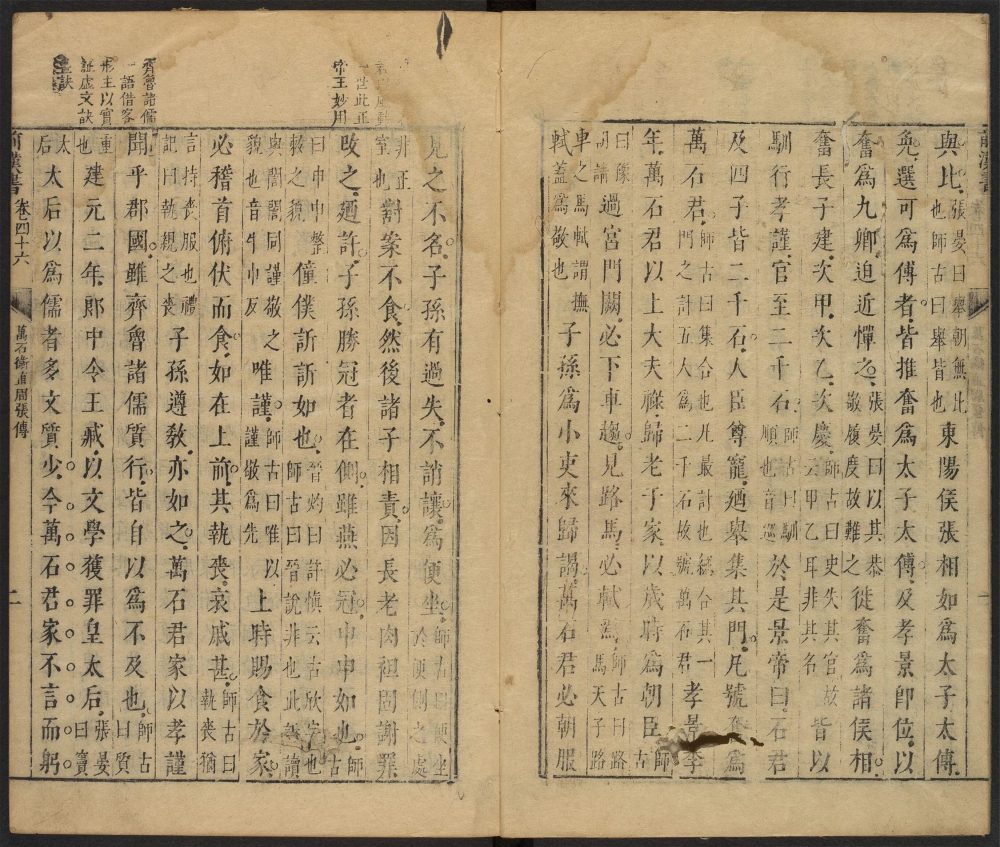 與比張晏曰舉朝無比也師古曰舉皆也東陽侯張相如爲太子太傅
免選可爲傅者皆推奮爲太子太傅及孝景即位以
奮爲九卿迫近憚之張晏曰以其恭敬履度故難之徙奮爲諸侯相
奮長子建次甲次乙次慶師古曰史失其官故云甲乙耳非其名皆以
馴行孝謹官至二千石師古曰馴順也音巡於是景帝曰石君
及四子皆二千石人臣尊寵廼舉集其門凡號奮爲
萬石君師古曰集合也凡最計也總合其一門之計五人爲二千石故號萬石君孝景季
年萬石君以上大夫祿歸老于家以歲時爲朝臣師古
曰豫朝請過宮門闕必下車趨見路馬必軾焉師古曰路馬天子路
車之馬軾謂撫軾蓋爲敬也子孫爲小吏來歸謁萬石君必朝服
見之不名子孫有過失不誚讓爲便坐師古曰便坐於便側之處
非正室也對案不食然後諸子相責因長老肉袒固謝罪
改之廼許子孫勝冠者在側雖燕必冠申申如也師古
曰申申整敕之貌僮僕訢訢如也晉灼曰許慎云古欣字也師古曰晉說非也此訢讀
與誾誾同謹敬之貌也音牛巾反唯謹師古曰唯以謹敬爲先上時賜食於家
必稽首俯伏而食如在上前其執喪哀戚甚師古曰執喪猶
言持喪服也禮記曰執親之喪子孫遵敎亦如之萬石君家以孝謹
聞乎郡國雖齊魯諸儒質行皆自以爲不及也師古曰質
重也建元二年郎中令王臧以文學獲罪皇太后張晏曰竇
太后太后以爲儒者多文質少今萬石君家不言而躬
前漢書
卷四十六
萬石衛直周張傳
二
一世此正
帝王妙用
齊魯諸儒
一語借客
形主以實
証虛文訣